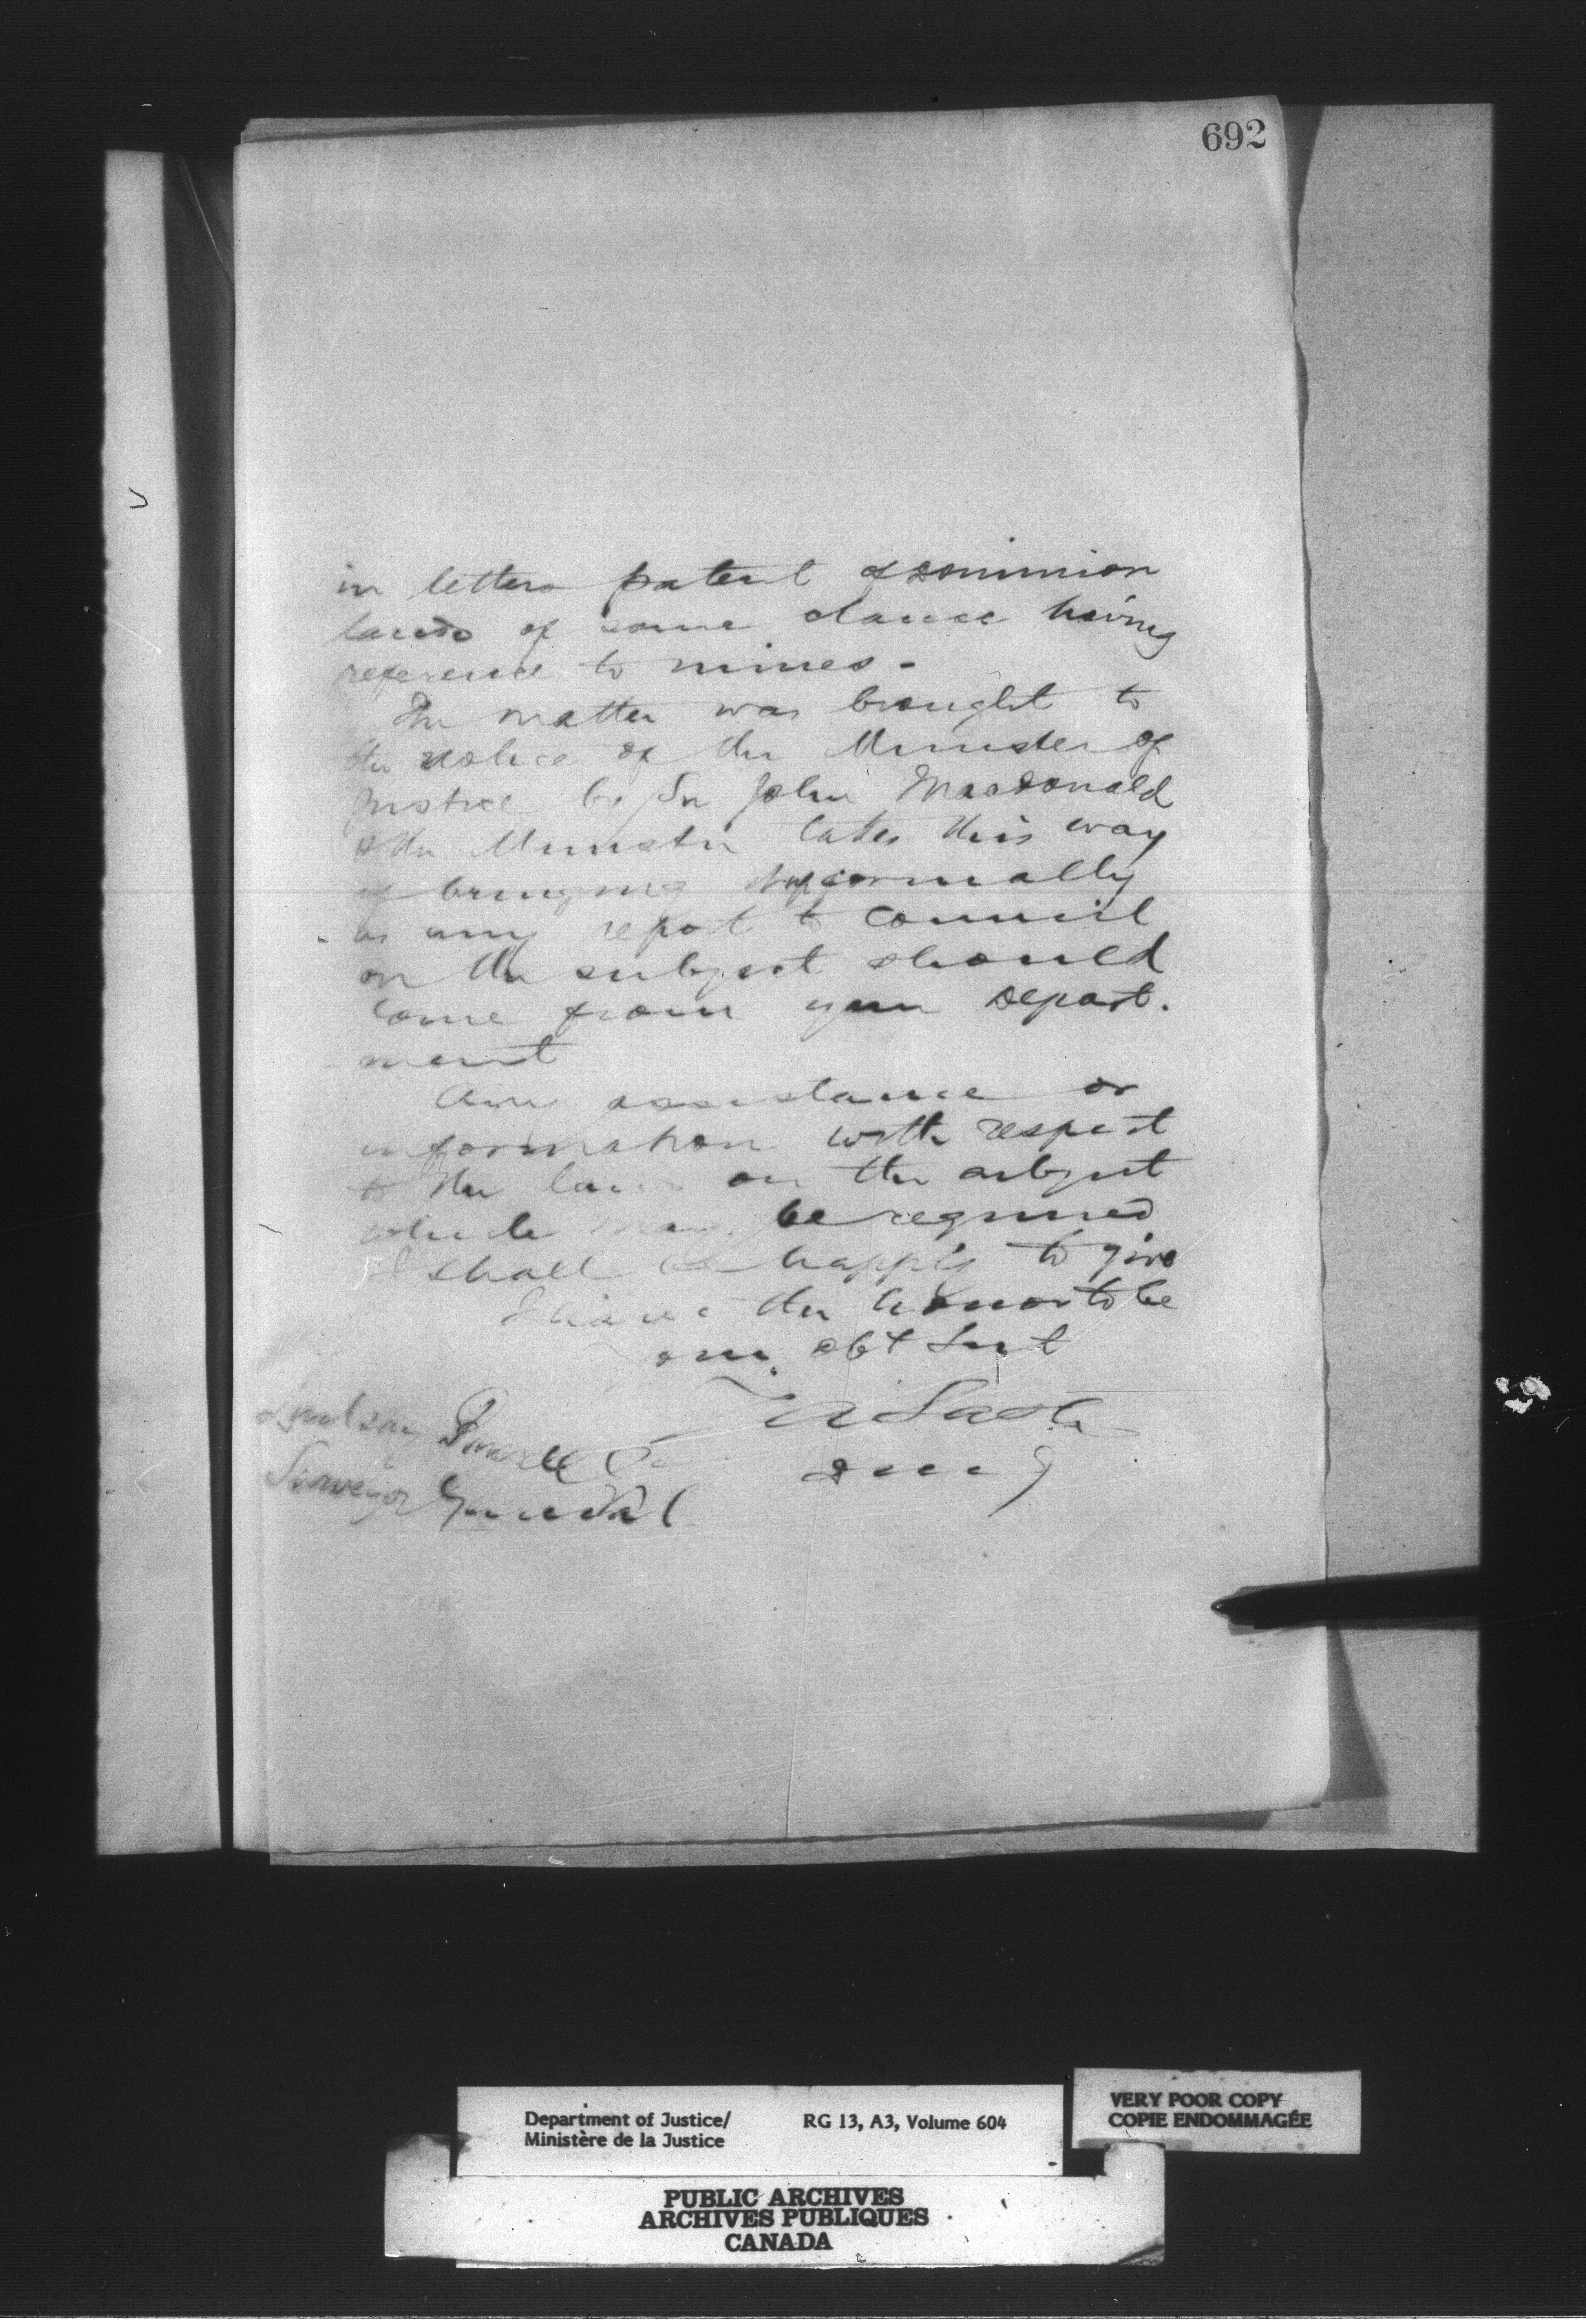 692
in letters patent of Dominion
lands of some clause having
reference to mines -
The matter was brought to
the notice of the Minister of
Justice by Sir John Macdonald
& the Minister takes this way
of bringing informally
as any report to Council
on the subject should
come from your Depart.
ment
Any assistance or
information with respect
to the law on the subject
which may be required
I shall be happy to give
I have the honor to be
obt Svt
Lindsay Russell
Surveyor General
Department of Justice/
Ministère de la Justice
RG 13, A3, Volume 604
VERY POOR COPY
COPIE ENDOMMAGÉE
PUBLIC ARCHIVES
ARCHIVES PUBLIQUES
CANADA